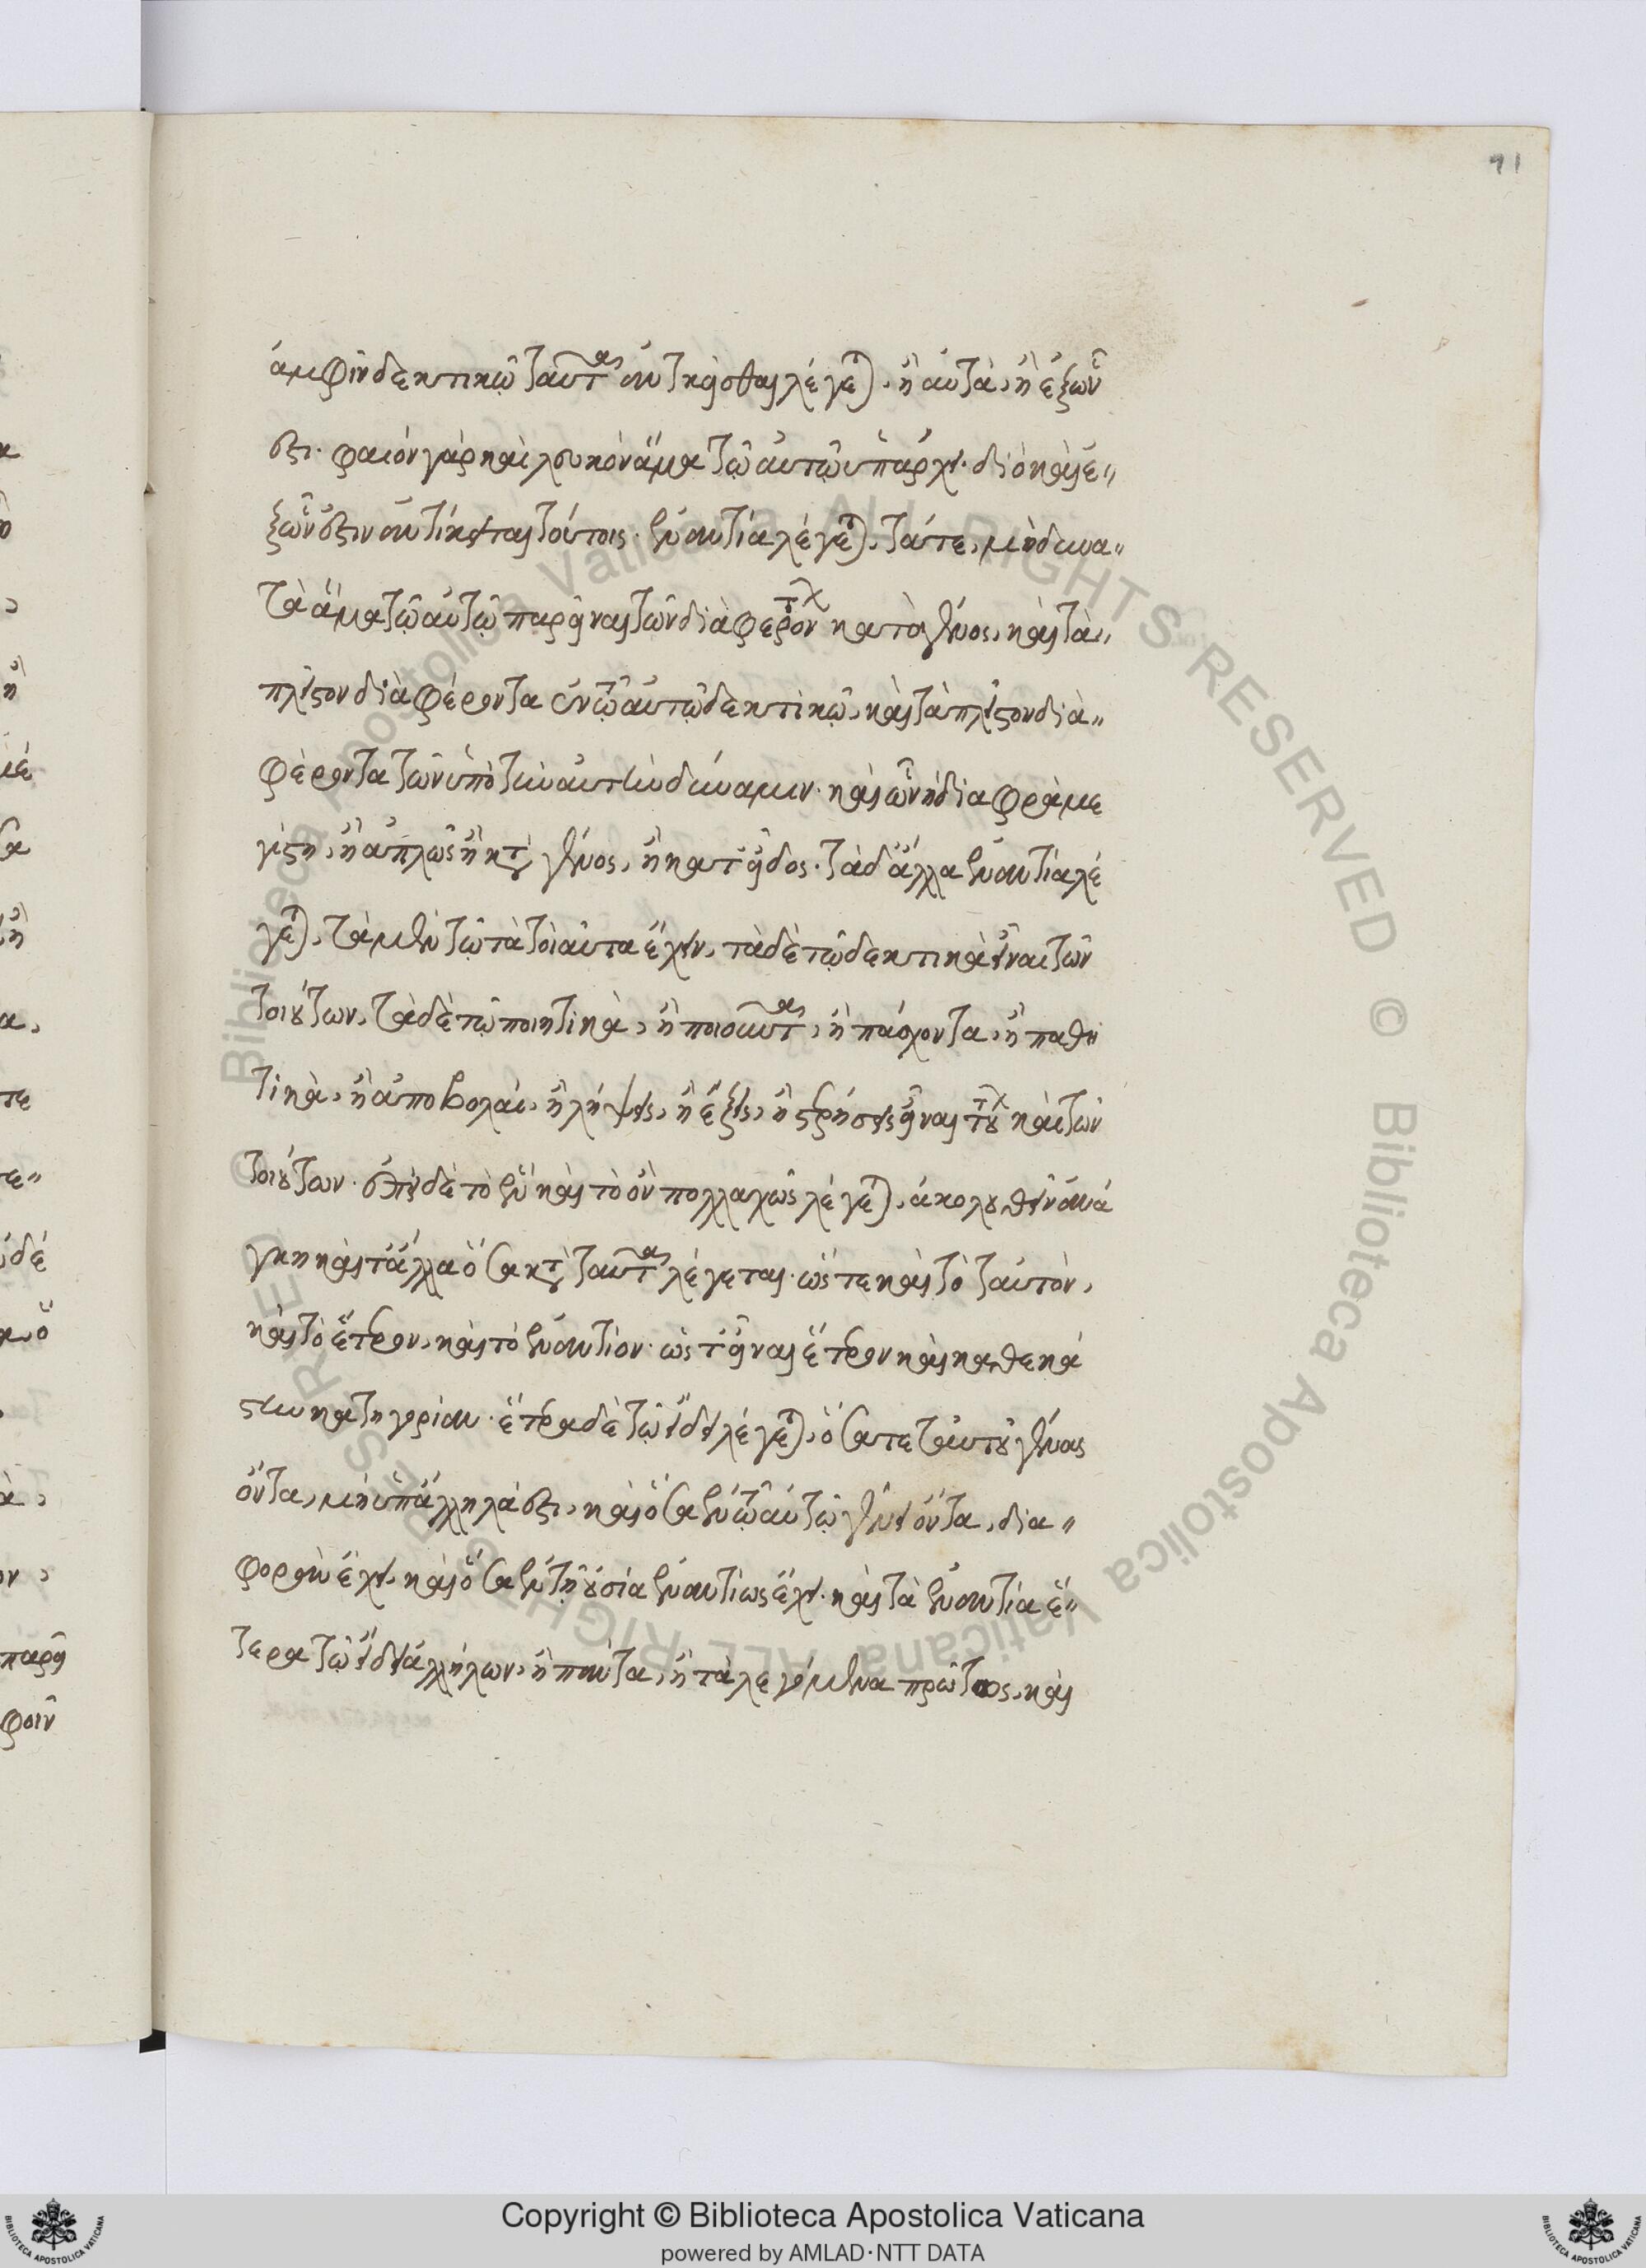 91
ἀμφοῖν δεκτικῷ ταῦτα ἀντικεῖσθαι λέγεται· ἢ αὐτὰ, ἢ ἐξ ὧν
ἐστι. φαιὸν γὰρ καὶ λευκὸν ἅμα τῷ αὐτῷ οὐχ ὑπάρχει. διὸ καὶ ἐ
ξ ὧν ἐστιν ἀντίκειται τούτοις. ἐναντία λέγεται, τά τε, μὴ δυνα
τὰ ἅμα τῷ αὐτῷ παρεῖναι τῶν διαφερόντων κατὰ γένος, καὶ τὰ
πλεῖστον διαφέροντα ἐν τῷ αὐτῷ δεκτικῷ, καὶ τὰ πλεῖστον δια
φέροντα τῶν ὑπὸ τὴν αὐτὴν δύναμιν. καὶ ὧν ἡ διαφορὰ με
γίστη, ἢ ἁπλῶς ἢ κατὰ γένος, ἢ κατ' εἶδος. τὰ δ' ἄλλα ἐναντία λέ
γεται, τὰ μὲν τῷ τὰ τοιαῦτα ἔχειν, τὰ δὲ τῷ δεκτικὰ εἶναι τῶν
τοιούτων, τὰ δὲ τῷ ποιητικὰ, ἢ ποιοῦντα, ἢ πάσχοντα, ἢ παθη
τικὰ, ἢ ἀποβολαὶ, ἢ λήψεις, ἢ ἕξεις, ἢ στερήσεις εἶναι τούτων καὶ τῶν
τοιούτων. ἐπεὶ δὲ τὸ ἓν καὶ τὸ ὂν πολλαχῶς λέγεται, ἀκολουθεῖν ἀνά
γκη καὶ τἄλλα ὅσα κατὰ ταῦτα λέγεται. ὥστε καὶ τὸ ταὐτὸν,
καὶ τὸ ἕτερον, καὶ τὸ ἐναντίον. ὥστ' εἶναι ἕτερον καὶ καθ' ἑκά
στην κατηγορίαν. ἕτερα δὲ τῷ εἴδει λέγεται, ὅσα τε ταὐτοῦ γένους
ὄντα, μὴ ὑπάλληλά ἐστι, καὶ ὅσα ἐν τῷ αὐτῷ γένει ὄντα, δια
φορὰν ἔχει, καὶ ὅσα ἐν τῇ οὐσίᾳ ἐναντίως ἔχει. καὶ τὰ ἐναντία ἕ
τερα τῷ εἴδει ἀλλήλων, ἢ πάντα, ἢ τὰ λεγόμενα πρώτως, καὶ
Copyright © Biblioteca Apostolica Vaticana
powered by AMLAD·NTT DATA